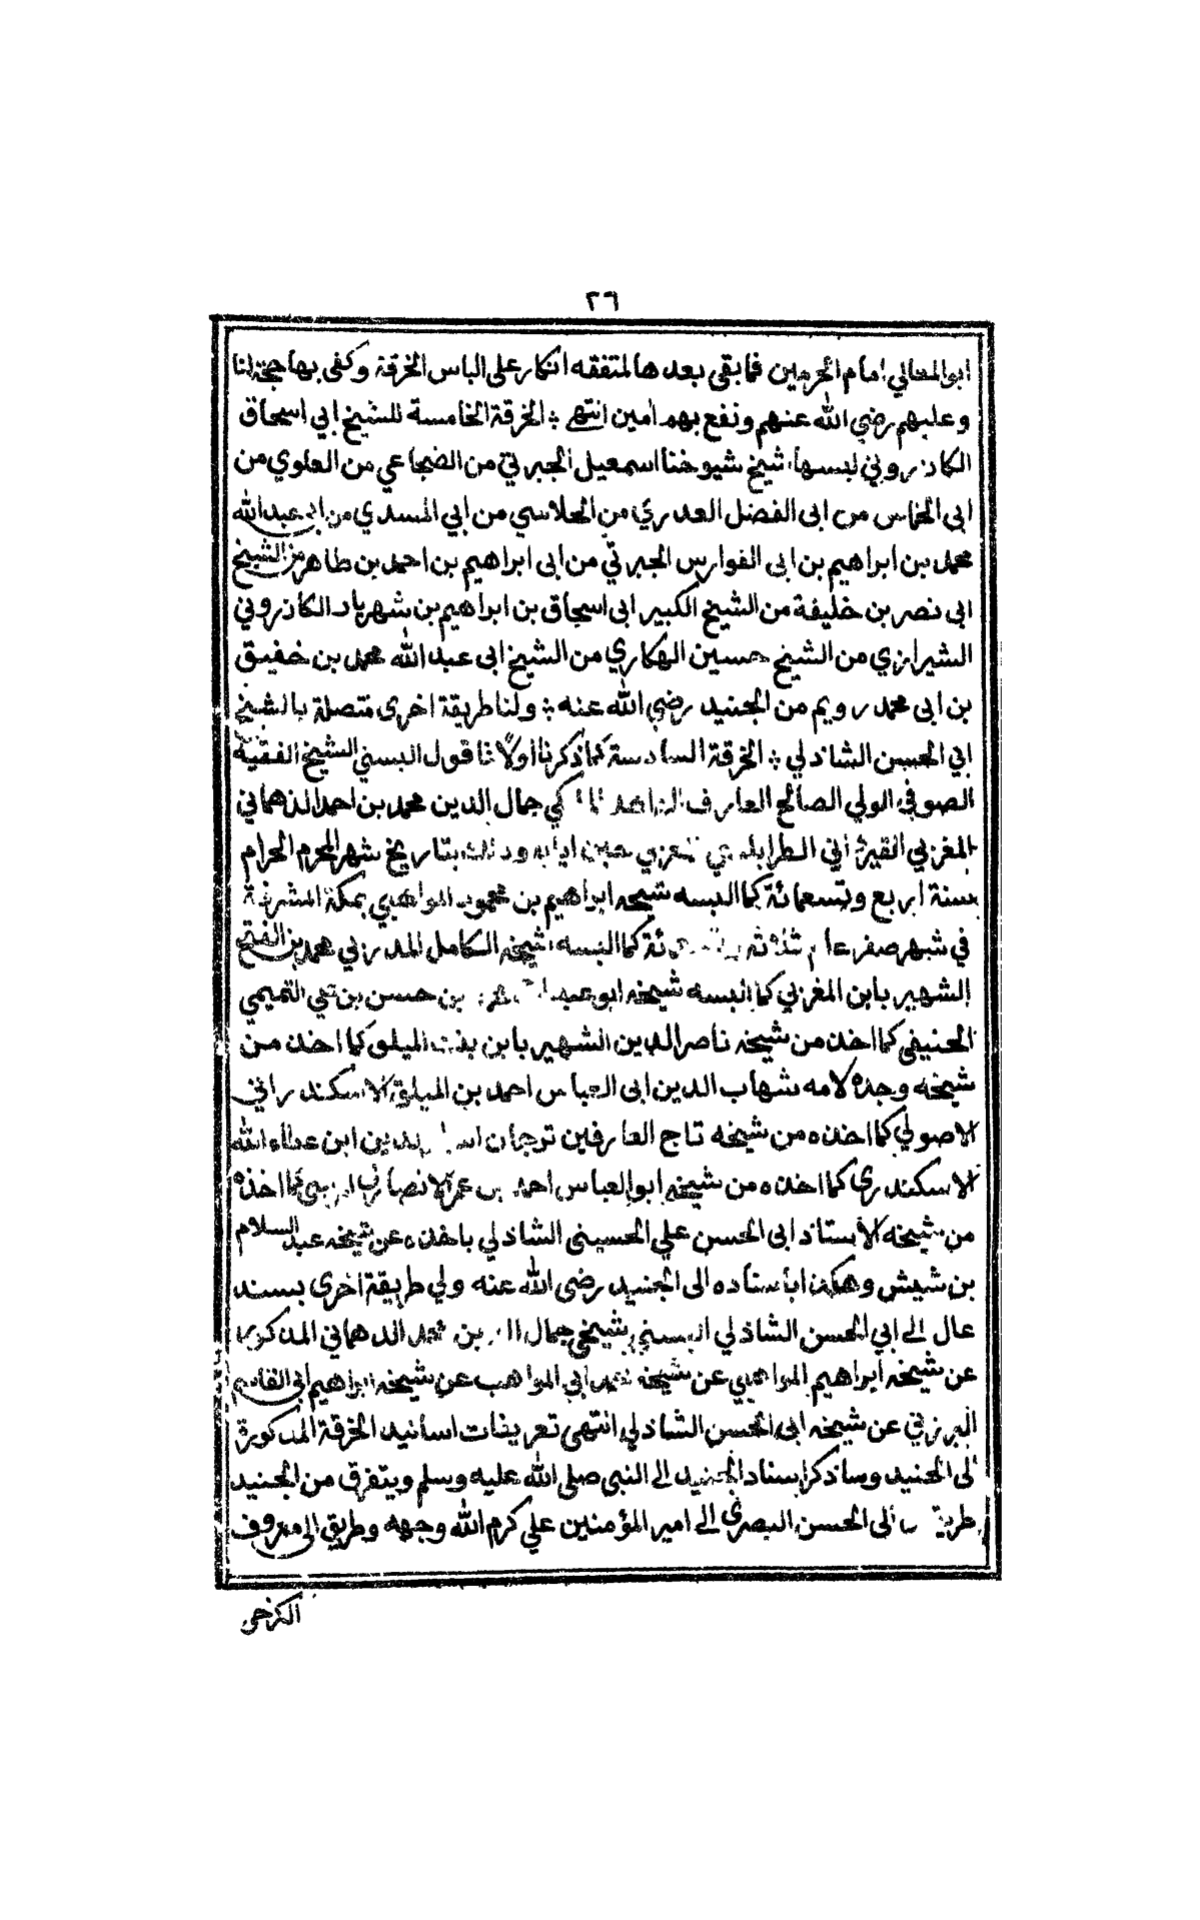 ٢٦
ابو المعالي امام الحرمين فما بقى بعدها لمتفقه انكار على الباس الخرقة وكفى بها حجة لنا
وعليهم رضي الله عنهم ونفع بهم امين انتهى ؞ الخرقة الخامسة للشيخ ابي اسحاق
الكاذروني لبسها شيخ شيوخنا اسمعيل الجبرتي من الضجاعي من العلوي من
ابى الخاس من ابى الفضل العدري من الحلاسي من ابي المسدي من ابى عبد الله
محمد بن ابراهيم بن ابى الفوارس الجبرتي من ابى ابراهيم بن احمد بن طاهر من الشيخ
ابى نصر بن خليفة من الشيخ الكبير ابى اسحاق بن ابراهيم بن شهريار الكاذروني
الشيرازي من الشيخ حسين الهكاري من الشيخ ابى عبد الله محمد بن خفيق
بن ابى محمد رويم من الجنيد رضي الله عنه ؞ ولنا طريقة اخرى متصلة بالشيخ
ابي الحسن الشاذلي ؞ الخرقة السادسة كما ذكرنا اولا فاقول البسني الشيخ الفقيه
الصوفي الولي الصالح العارف جمال الدين محمد بن احمد الدهماني
المغربي القيرواني الطرابلسي وذلك بتاريخ شهر المحرم الحرام
سنة اربع وتسعمائة كما البسه شيخه ابراهيم بن محمود المواهبي بمكة المشرفة
في شهر صفر عام ثلاثة كما البسه شيخه الكامل المدربي محمد بن الفتح
الشهير بابن المغربي كما البسه شيخه ابو عبد بن حسن بن علي التميمي
الحنيفى كما اخذ من شيخه ناصر الدين الشهير بابن بنت الميلق كما اخذ من
شيخه وجده لامه شهاب الدين ابى العباس احمد بن الميلق الاسكندراني
الاصولي كما اخذه من شيخه تاج العارفين ترجمان ابن عطاء الله
الاسكندرى كما اخذه من شيخه ابو العباس احمد بن عمر الانصاري كما اخذه
من شيخه الاستاذ ابى الحسن علي الحسينى الشاذلي باخذه عن شيخه عبد السلام
بن شيش وهكذا باسناده الى الجنيد رضى الله عنه ولي طريقة اخرى بسند
عال الى ابي الحسن الشاذلي البسني شيخي جمال بن محمد الدهماني المذكور
عن شيخه ابراهيم المواهبي عن شيخه محمد ابي المواهب عن شيخه ابراهيم ابى القاسم
البرزني عن شيخه ابى الحسن الشاذلي انتهى تعريفات اسانيد الخرقة المذكورة
الى الجنيد وساذكر اسناد الجنيد الى النبى صلى الله عليه وسلم ويتفرق من الجنيد
الى الحسن البصرى الى امير المؤمنين علي كرم الله وجهه وطريق الى معروف
الكرخى